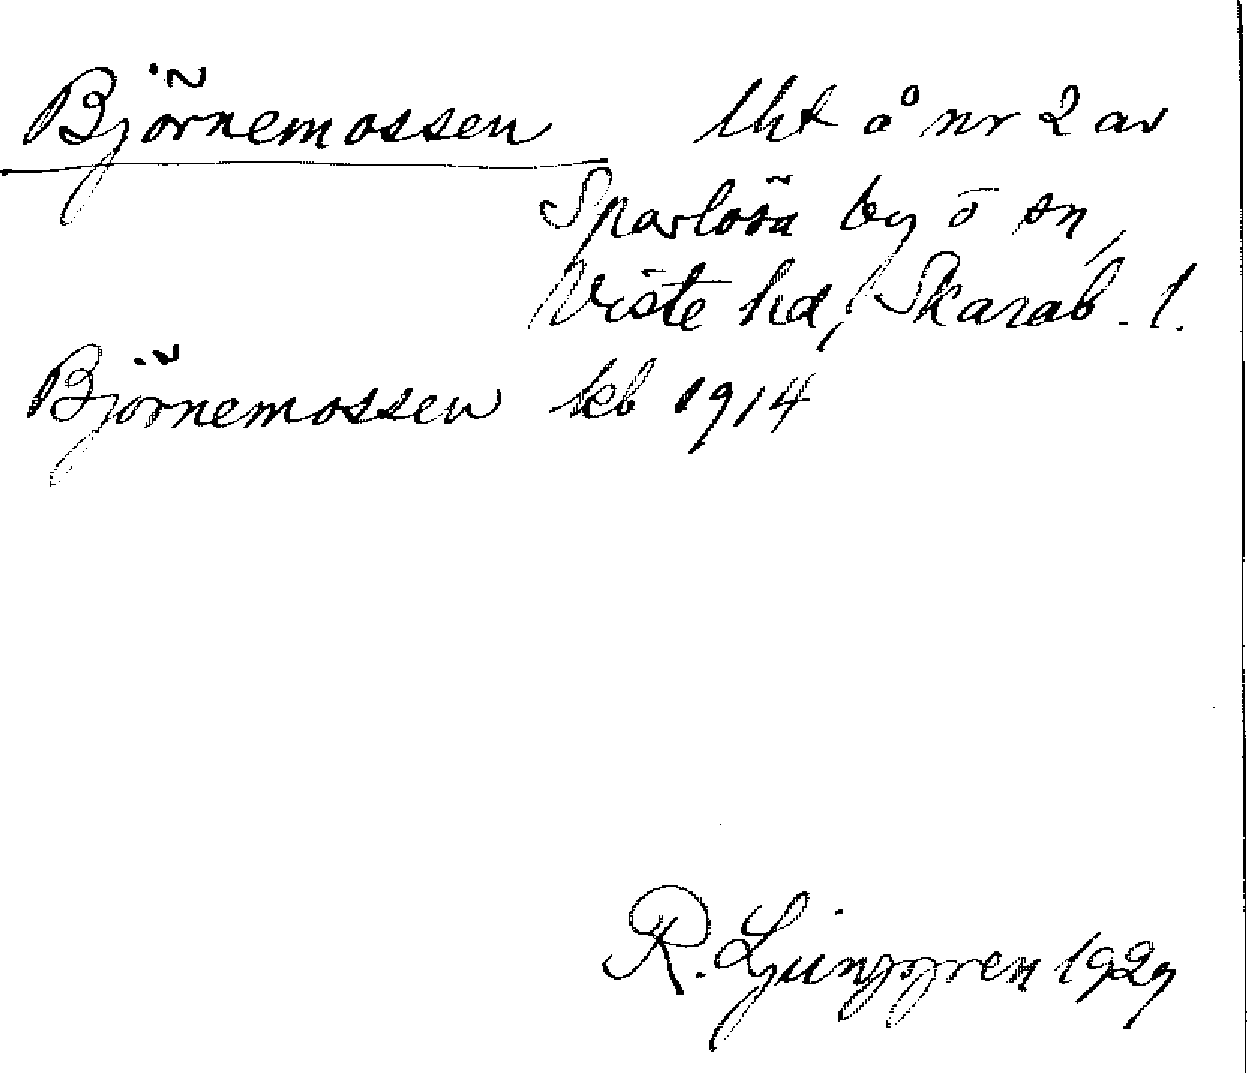 Björnemossen lht å nr 2 av
Sparlösa by o sn,
Viste hd, Skarab. l.
Björnemossen kb 1914
R. Ljunggren 1929